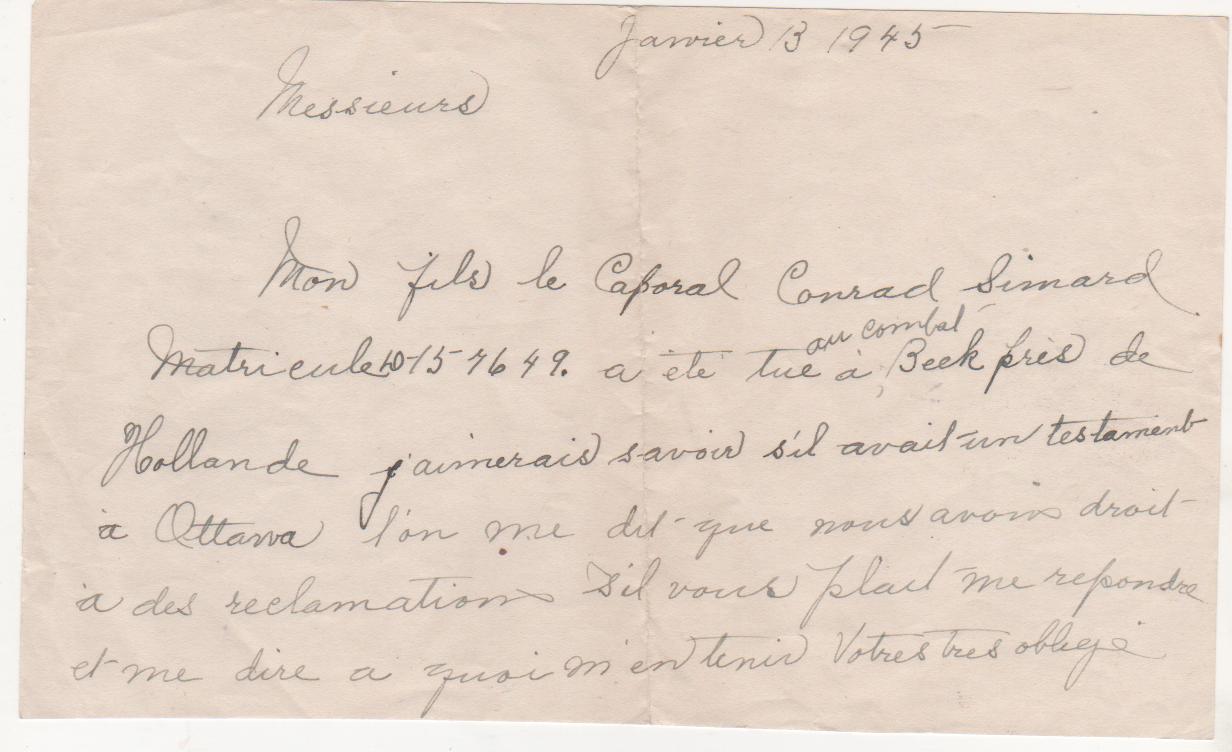 Janvier 13 1945
Messieurs
Mon fils le Caporal Conrad Simard
au combat
Matricule D-157649. a été tué à Beek près de
Hollande j'aimerais savoir s'il avait un testament
à Ottawa l'on me dit que nous avons droit
a des reclamations s'il vous plait me repondre
et me dire a quoi m'en tenir Votres tres obligé